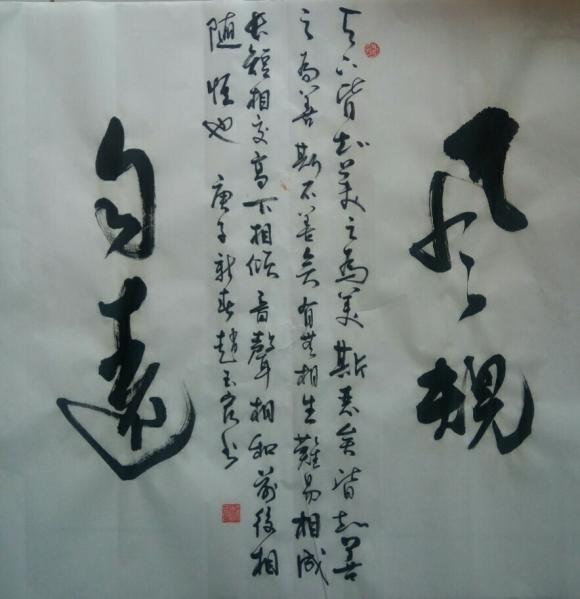 風規
天下皆知美之為美斯惡矣皆知善
之為善斯不善矣有無相生難易相成
長短相交高下相傾音聲相和前後相
隨恒也 庚子新春趙玉書
自遠